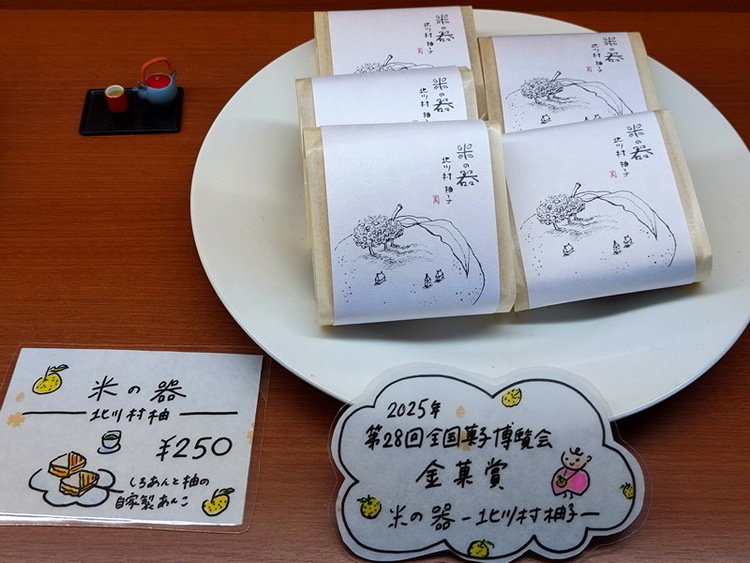 米の器
北川村 柚子
米の器
北川村 柚子
米の器
北川村 柚子
米の器
北川村 柚子
米の器
北川村 柚子
米の器
北川村柚
¥250
しろあんと柚の
自家製あんこ
2025年
第28回全国菓子博覧会
金菓賞
米の器-北川村柚子-